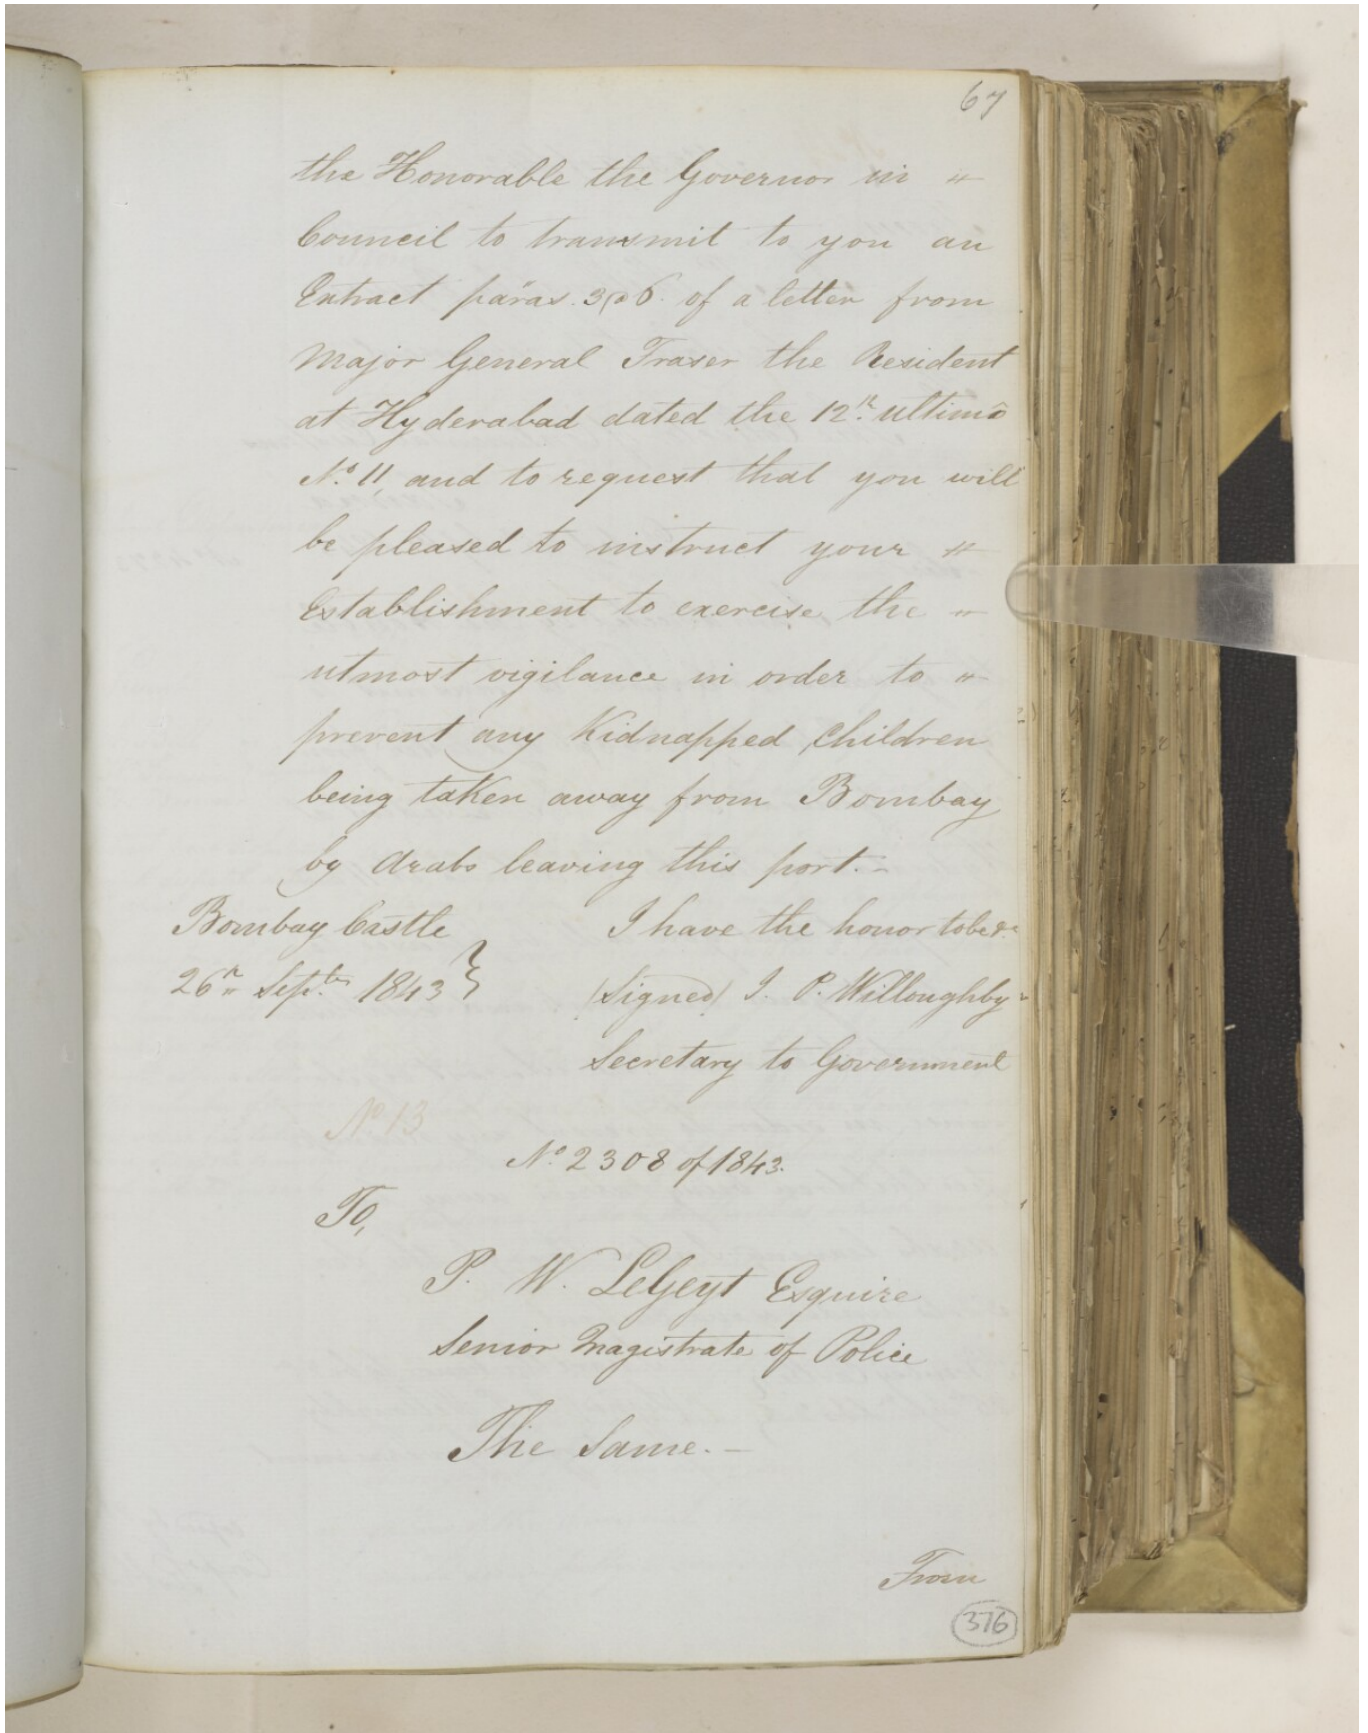 67
the Honorable the Governor in "
Council to transmit to you an
Extract paras. 3 @ 6. of a letter from
Major General Fraser the Resident
at Hyderabad dated the 12th ultimo
No. 11, and to request that you will
be pleased to instruct your "
Establishment to exercise the "
utmost vigilance in order to "
prevent any Kidnapped Children
being taken away from Bombay
by Arabs leaving this port. -
Bombay Castle
26th Septbr 1843 }
I have the honor to be &c
(Signed) J. P. Willoughby
Secretary to Government
No. 13
No. 2308 of 1843.
To,
P. W. LeGeyt Esquire
Senior Magistrate of Police
The Same. -
From
376